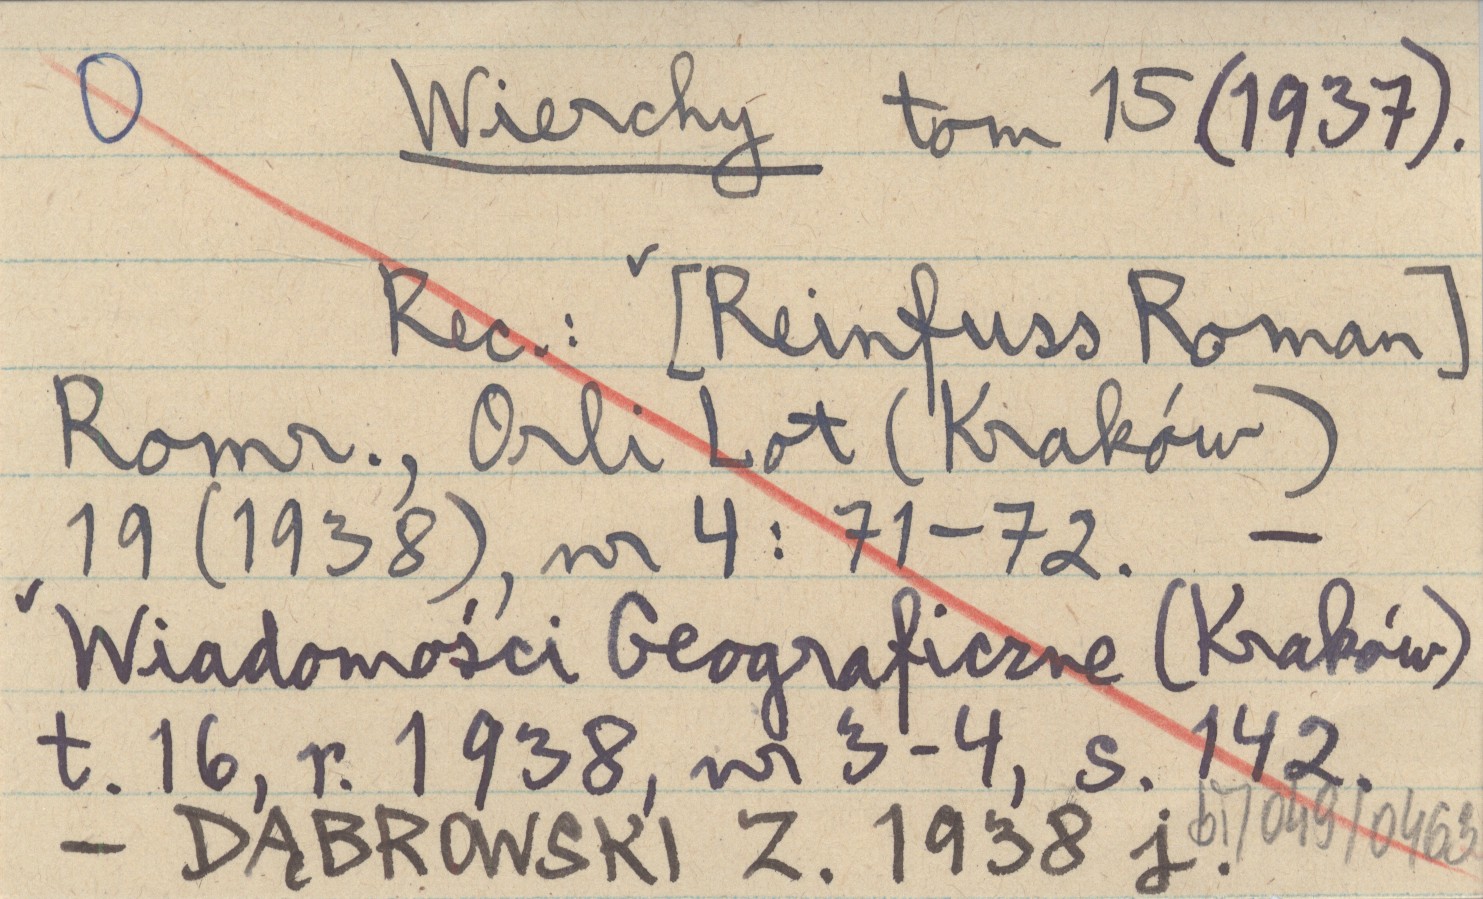 O Wierchy tom 15 (1937).
Rec.: ✓[Reinfuss Roman]
Romr., Orli Lot (Kraków)
19 (1938), nr 4: 71-72. —
✓Wiadomości Geograficzne (Kraków)
t. 16, r. 1938, nr 3-4, s. 142.
— DĄBROWSKI Z. 1938 j.
bi/049/0463